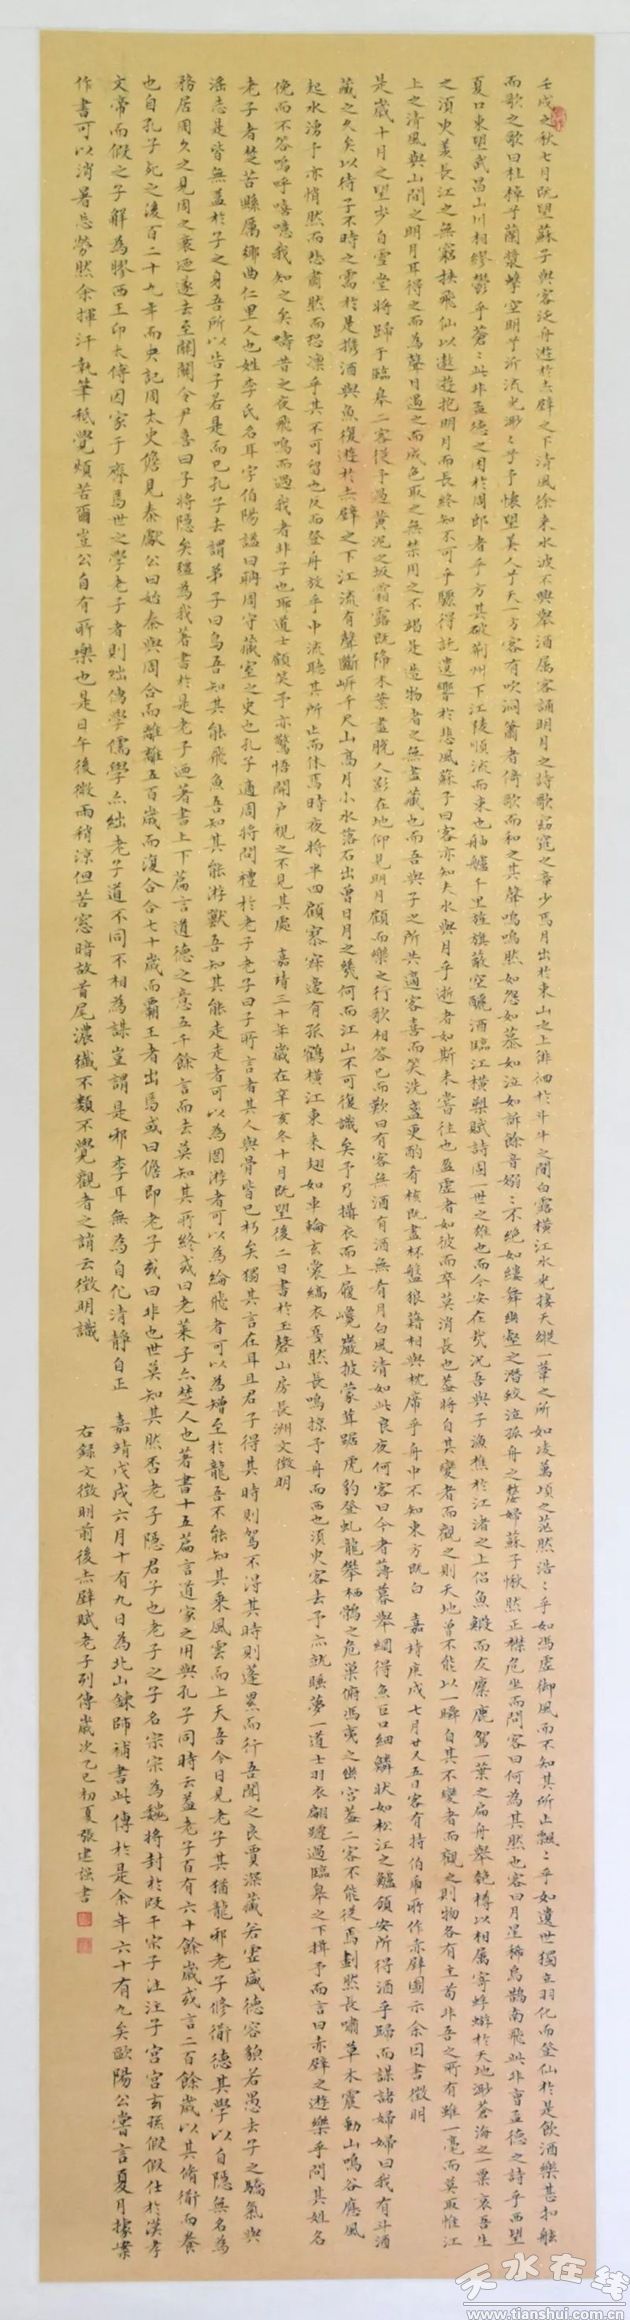 壬戌之秋七月既望蘇子與客泛舟遊於赤壁之下清風徐來水波不興舉酒屬客誦明月之詩歌窈窕之章少焉月出於東山之上徘徊於斗牛之間白露橫江水光接天縱一葦之所如凌萬頃之茫然浩〻乎如馮虛御風而不知其所止飄〻乎如遺世獨立羽化而登仙於是飲酒樂甚扣舷
而歌之歌曰桂棹兮蘭槳擊空明兮泝流光渺〻兮予懷望美人兮天一方客有吹洞簫者倚歌而和之其聲嗚嗚然如怨如慕如泣如訴餘音嫋〻不絕如縷舞幽壑之潛蛟泣孤舟之嫠婦蘇子愀然正襟危坐而問客曰何為其然也客曰月星稀烏鵲南飛此非曹孟德之詩乎西望
夏口東望武昌山川相繆鬱乎蒼〻此非孟德之困於周郎者乎方其破荊州下江陵順流而東也舳艫千里旌旗蔽空釃酒臨江橫槊賦詩固一世之雄也而今安在哉況吾與子漁樵於江渚之上侶魚鰕而友麋鹿駕一葉之扁舟舉匏樽以相屬寄蜉蝣於天地渺蒼海之一粟哀吾生
之須臾羨長江之無窮挾飛仙以遨遊抱明月而長終知不可乎驟得託遺響於悲風蘇子曰客亦知夫水與月乎逝者如斯未嘗往也盈虛者如彼而卒莫消長也蓋將自其變者而觀之則天地曾不能以一瞬自其不變者而觀之則物各有主苟非吾之所有雖一毫而莫取惟江
上之清風與山間之明月耳得之而為聲目遇之而成色取之無禁用之不竭是造物者之無盡藏也而吾與子之所共適客喜而笑洗盞更酌肴核既盡杯盤狼藉相與枕席乎舟中不知東方既白 嘉靖庚戌七月廿又五日客有持伯虎所作赤壁圖示余因書徵明
是歲十月之望步自雪堂將歸于臨皋二客從予過黃泥之坂霜露既降木葉盡脫人影在地仰見明月顧而樂之行歌相答已而歎曰有客無酒有酒無肴月白風清如此良夜何客曰今者薄暮舉網得魚巨口細鱗狀如松江之鱸顧安所得酒乎歸而謀諸婦婦曰我有斗酒
藏之久矣以待子不時之需於是攜酒與魚復遊於赤壁之下江流有聲斷岸千尺山高月小水落石出曾日月之幾何而江山不可復識矣予乃攝衣而上履巉巖披蒙茸踞虎豹登虬龍攀栖鶻之危巢俯馮夷之幽宮蓋二客不能從焉劃然長嘯草木震動山鳴谷應風
起水湧予亦悄然而悲肅然而恐凜乎其不可留也反而登舟放乎中流聽其所止而休焉時夜將半四顧寂寥適有孤鶴橫江東來翅如車輪玄裳縞衣戛然長鳴掠予舟而西也須臾客去予亦就睡夢一道士羽衣翩躚過臨皋之下揖予而言曰赤壁之遊樂乎問其姓名
俛而不答嗚呼嘻噫我知之矣疇昔之夜飛鳴而過我者非子也耶道士顧笑予亦驚悟開戶視之不見其處 嘉靖三十年歲在辛亥冬十月既望後二日書於玉磬山房長洲文徵明
老子者楚苦縣厲鄉曲仁里人也姓李氏名耳字伯陽謚曰聃周守藏室之史也孔子適周將問禮於老子老子曰子所言者其人與骨皆已朽矣獨其言在耳且君子得其時則駕不得其時則蓬累而行吾聞之良賈深藏若虛盛德容貌若愚去子之驕氣與
淫志是皆無益於子之身吾所以告子若是而已孔子去謂弟子曰鳥吾知其能飛魚吾知其能游獸吾知其能走走者可以為罔游者可以為綸飛者可以為矰至於龍吾不能知其乘風雲而上天吾今日見老子其猶龍邪老子修道德其學以自隱無名為
務居周久之見周之衰迺遂去至關關令尹喜曰子將隱矣彊為我著書於是老子迺著書上下篇言道德之意五千餘言而去莫知其所終或曰老萊子亦楚人也著書十五篇言道家之用與孔子同時云蓋老子百有六十餘歲或言二百餘歲以其脩道而養
也自孔子死之後百二十九年而史記周太史儋見秦獻公曰始秦與周合而離離五百歲而復合合七十歲而霸王者出焉或曰儋即老子或曰非也世莫知其然否老子隱君子也老子之子名宗宗為魏將封於段干宗子注注子宮宮玄孫假假仕於漢孝
文帝而假之子解為膠西王卬太傅因家于齊焉世之學老子者則絀儒學儒學亦絀老子道不同不相為謀豈謂是邪李耳無為自化清靜自正 嘉靖戊戌六月十有九日為北山鍊師補書此傳於是余年六十有九矣歐陽公嘗言夏月據案
作書可以消暑忘勞然余揮汗執筆秪覺煩苦爾豈公自有所樂也是日午後微雨稍涼但苦窓暗故首尾濃纖不類不覺觀者之誚云徵明識
右錄文徵明前後赤壁賦老子列傳歲次乙巳初夏張建強書
天水在线
www.tianshui.com.cn